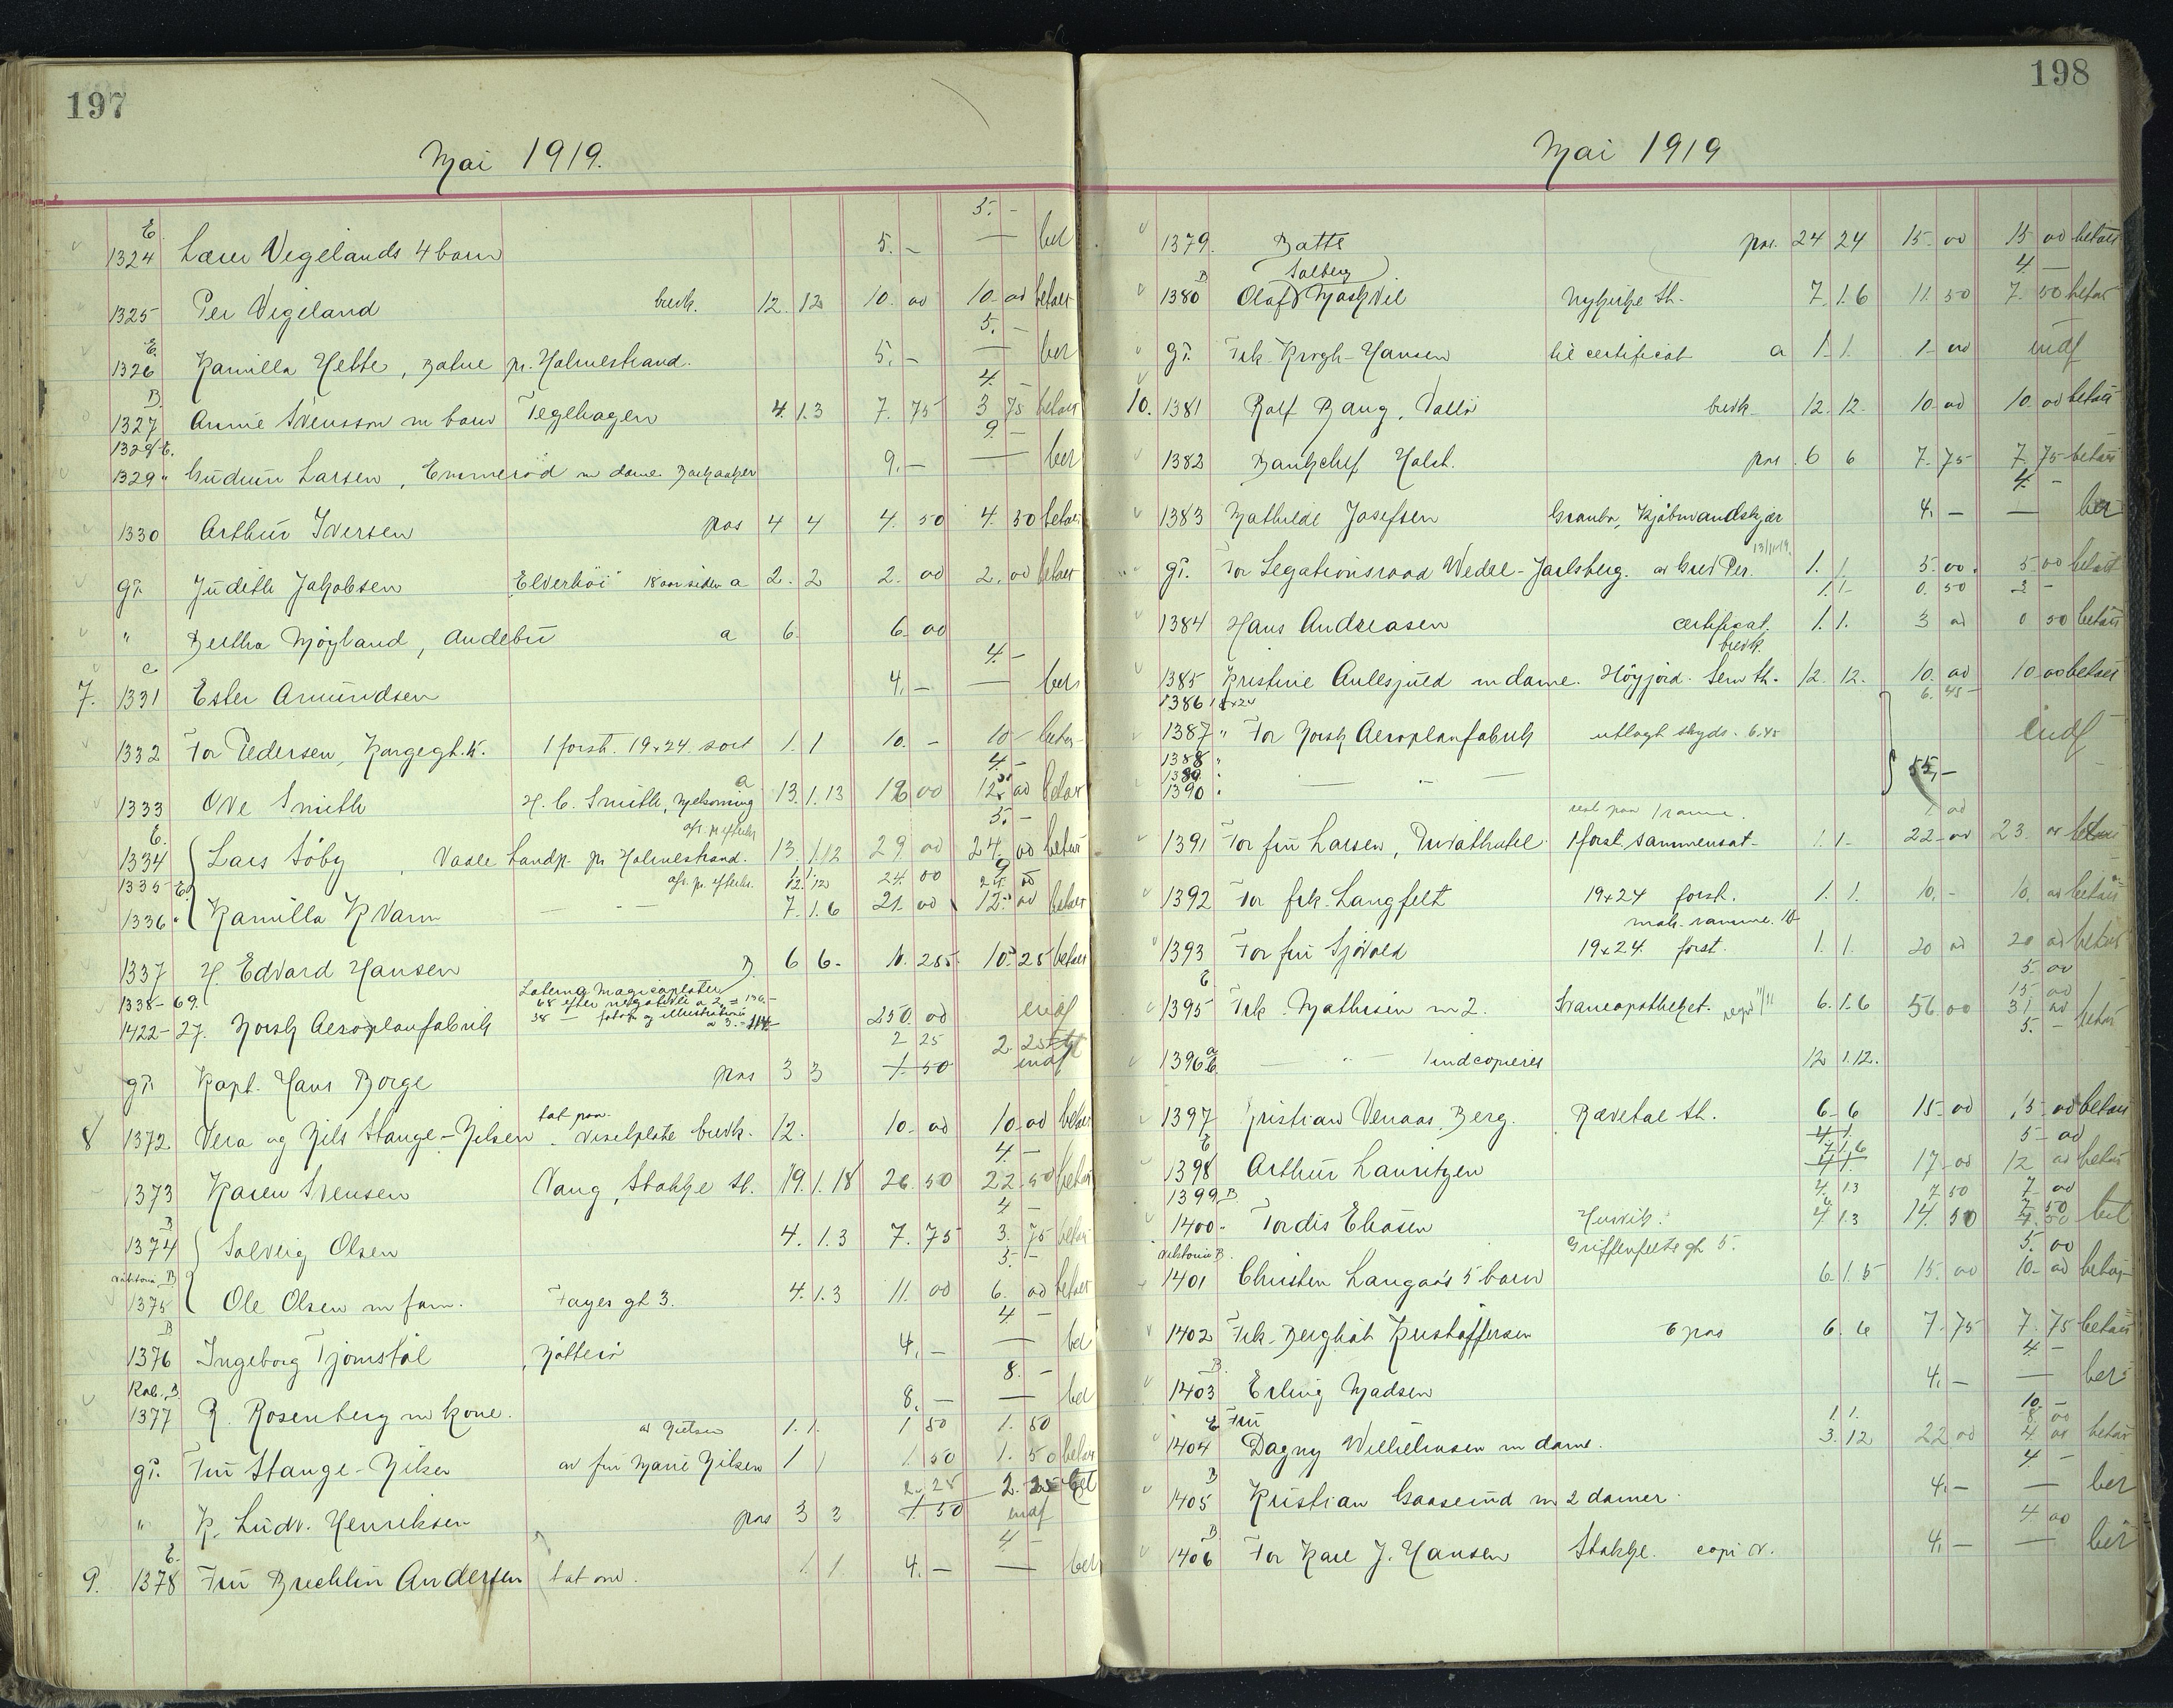 197
Mai 1919.
E.
5. -
1324 Lærer Vegelands 4 barn 5. - — ber
1325 Per Vegeland brevk. 12. 12 10. 00 10. 00 betalt
E. 5. -
1326 Kamilla Hette, pr. Holmestrand. 5. - — ber
B. 4. -
1327 Annie Svensson m barn Teglhagen 4. 1.3 7. 75 3 75 betalt
1328 E. 9. -
1329 " Gudrun Larsen, Emmerød m dame. 9. - — ber
1330 Arthur Iversen pas 4 4 4. 50 4. 50 betalt
gr. Judith Jakobsen "Elverhöi" 18 aar siden a 2. 2 2. 00 2. 00 betalt
" Bertha Möyland, Andebu a 6. 6. 00
4. -
7. 1331 Ester Amundsen 4. - — ber
1332 For Pedersen, 1 forst. 19x24 sort 1. 1 10. - 10 - betalt
4. -
1333 Ove Smith H. C. Smith, a 13. 1.13 16 00 12 00 betalt
E. 5. -
1334 Lars Söby, Vaale Landh. pr Holmestrand. 13. 1.12 29 00 24. 00 betalt
1335 E. 12. 12 24. 00
1336 " Kamilla Kvarn — " — 7. 1.6 21. 00 12. 00 betalt
1337 H. Edvard Hansen B. 6 6. 10. 25 betalt
1338-69. Laterna Magicaplater
68 efter negativer a 2. = 136.-
1422-27. Norsk Aeroplanfabrik 38 — fotogr. og illustrationer a 3. = 114- 250. 00 indf
2 25 2. 25
gr. Kapt. Hans Borge pas 3 3 1. 50 indf
8 1372. Vera og Nils Stange-Nilsen tat paa visitplate brevk. 12. 10. 00 10. 00 betalt
4. -
1373 Karen Svensen Vang, Stokke St. 19. 1. 18 26. 50 22. 50 betalt
B 4 -
1374 Solveig Olsen 4. 1.3 7. 75 3. 75 betalt
Viktoria B 5. -
1375 Ole Olsen m fam. Fayes gt 3. 4. 1.3 11. 00 6. 00 betalt
B 4 -
1376 Ingeborg Tjomstöl Nötterö 4. - — ber
Kab. B. 8. -
1377 R. Rosenberg m kone. 8. - — ber
av 1. 1. 1 50 1. 50
gr. Fru Stange-Nilsen av fru Marie Nilsen 1 1 1. 50 1. 50 betalt
2. 25 2. 25 bet
" K. Ludv. Henriksen pas 3 3 1. 50 indf
E. 4 -
9. 1378 Fru Brechlin Andersen tat om. 1 1 4. - — ber
198
Mai 1919
1379. Batte pas. 24 24 15. 00 15 00 betalt
B (Solberg) 4. -
1380 Olaf Maskvil Nykirke St. 7. 1.6 11. 50 7. 50 betalt
gr. Frk. Krogh-Hansen til certificat a 1. 1. 1. 00 indf
10. 1381 Rolf Bang, Vallö brevk. 12. 12. 10. 00 10. 00 betalt
1382 Bankchef Holst. pas 6 6 7. 75 7. 75 betalt
4. -
1383 Mathilde Josefsen Granbo, Kjöbmandskjær 4. - — ber
gr. For Legationsraad Wedel-Jarlsberg. av Grev Per. 1. 1. 5. 00. 5 00 betalt
1. 1- 0. 50 2 -
1384 Hans Andreasen certifikat. 1. 1. 3 00 0 50 betalt
brevk.
1385 Kristine Aulesjued m dame. Höyjord. Sem St. 12. 12. 10. 00 10. 00 betalt
1386 18x24 6. 45 -
1387 " For Norsk Aeroplanfabrik utlagt skyds. 6.45 indf
1388 "
1389 "
1390 " — " — 55, -
paa 1 ramme. 1 00
1391 For fru Larsen, Privathotel 1 forst. sammensat- 1. 1- 22 00 23. 00 betalt
1392 For frk. Langfelt 19x24 forst. 1. 1. 10. - 10. 00 betalt
mah. ramme. 10
1393 For fru Sjövold 19x24 forst. 1. 1. 20 00 20 00 betalt
E 5. 00
15 00
1395 Frk. Mathisen m 2. Svaneapotheket. 6. 1.6 56 00 31 00 betalt
5. -
1396 a b — " — 1 indcopieres 12 1.12.
1397 Kristian Venaas, Berg. Rævetal St. 6. 6 15. 00 15. 00 betalt
E 5 - 00
1398 Arthur Lauritzen 7 1.6 17. 00 12 00 betalt
1399 B 4. 1.3 7 50 7 00
1400 " Tordis Eliasen Husvik. 4 1.3 14. 50 7. 50 bet
Viktoria B. Griffenfeldts gt 5. 5. 00
1401 Christen Langaas 5 barn 6. 1.5 15. 00 10. 00 betalt
1402 Frk. Bergliot Kristoffersen 6 pas 6. 6 7. 75 7. 75 betalt
B. 4. -
1403 Erling Madsen 4. - — ber
E Fru 1. 1. 10. -
8. 00
1404 Dagny Wilhelmsen m dame. 3. 12 22 00 4 00 betalt
B 4 -
1405 Kristian Gaaserud m 2 damer. 4. - — ber
B 4. 00
1406 For Kare J. Hansen Stokke. copi 4. - — ber